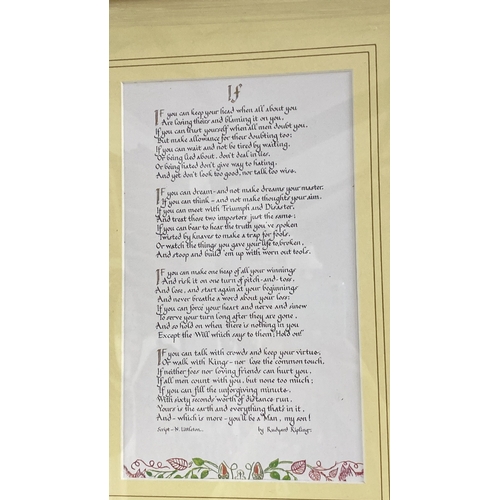 If
If you can keep your head when all about you
Are losing theirs and blaming it on you,
If you can trust yourself when all men doubt you,
But make allowance for their doubting too;
If you can wait and not be tired by waiting,
Or being lied about, don't deal in lies,
Or being hated don't give way to hating,
And yet don't look too good, nor talk too wise.
If you can dream - and not make dreams your master,
If you can think - and not make thoughts your aim,
If you can meet with Triumph and Disaster,
And treat those two impostors just the same;
If you can bear to hear the truth you've spoken
Twisted by knaves to make a trap for fools,
Or watch the things you gave your life to, broken,
And stoop and build 'em up with worn out tools.
If you can make one heap of all your winnings
And risk it on one turn of pitch-and-toss,
And lose, and start again at your beginnings
And never breathe a word about your loss:
If you can force your heart and nerve and sinew
To serve your turn long after they are gone,
And so hold on when there is nothing in you
Except the Will which says to them, 'Hold on!'
If you can talk with crowds and keep your virtue,
Or walk with Kings - nor lose the common touch,
If neither foes nor loving friends can hurt you,
If all men count with you, but none too much;
If you can fill the unforgiving minute,
With sixty seconds' worth of distance run,
Yours is the earth and everything that's in it,
And - which is more - you'll be a Man, my son!
Script - N. Littleton. by Rudyard Kipling.